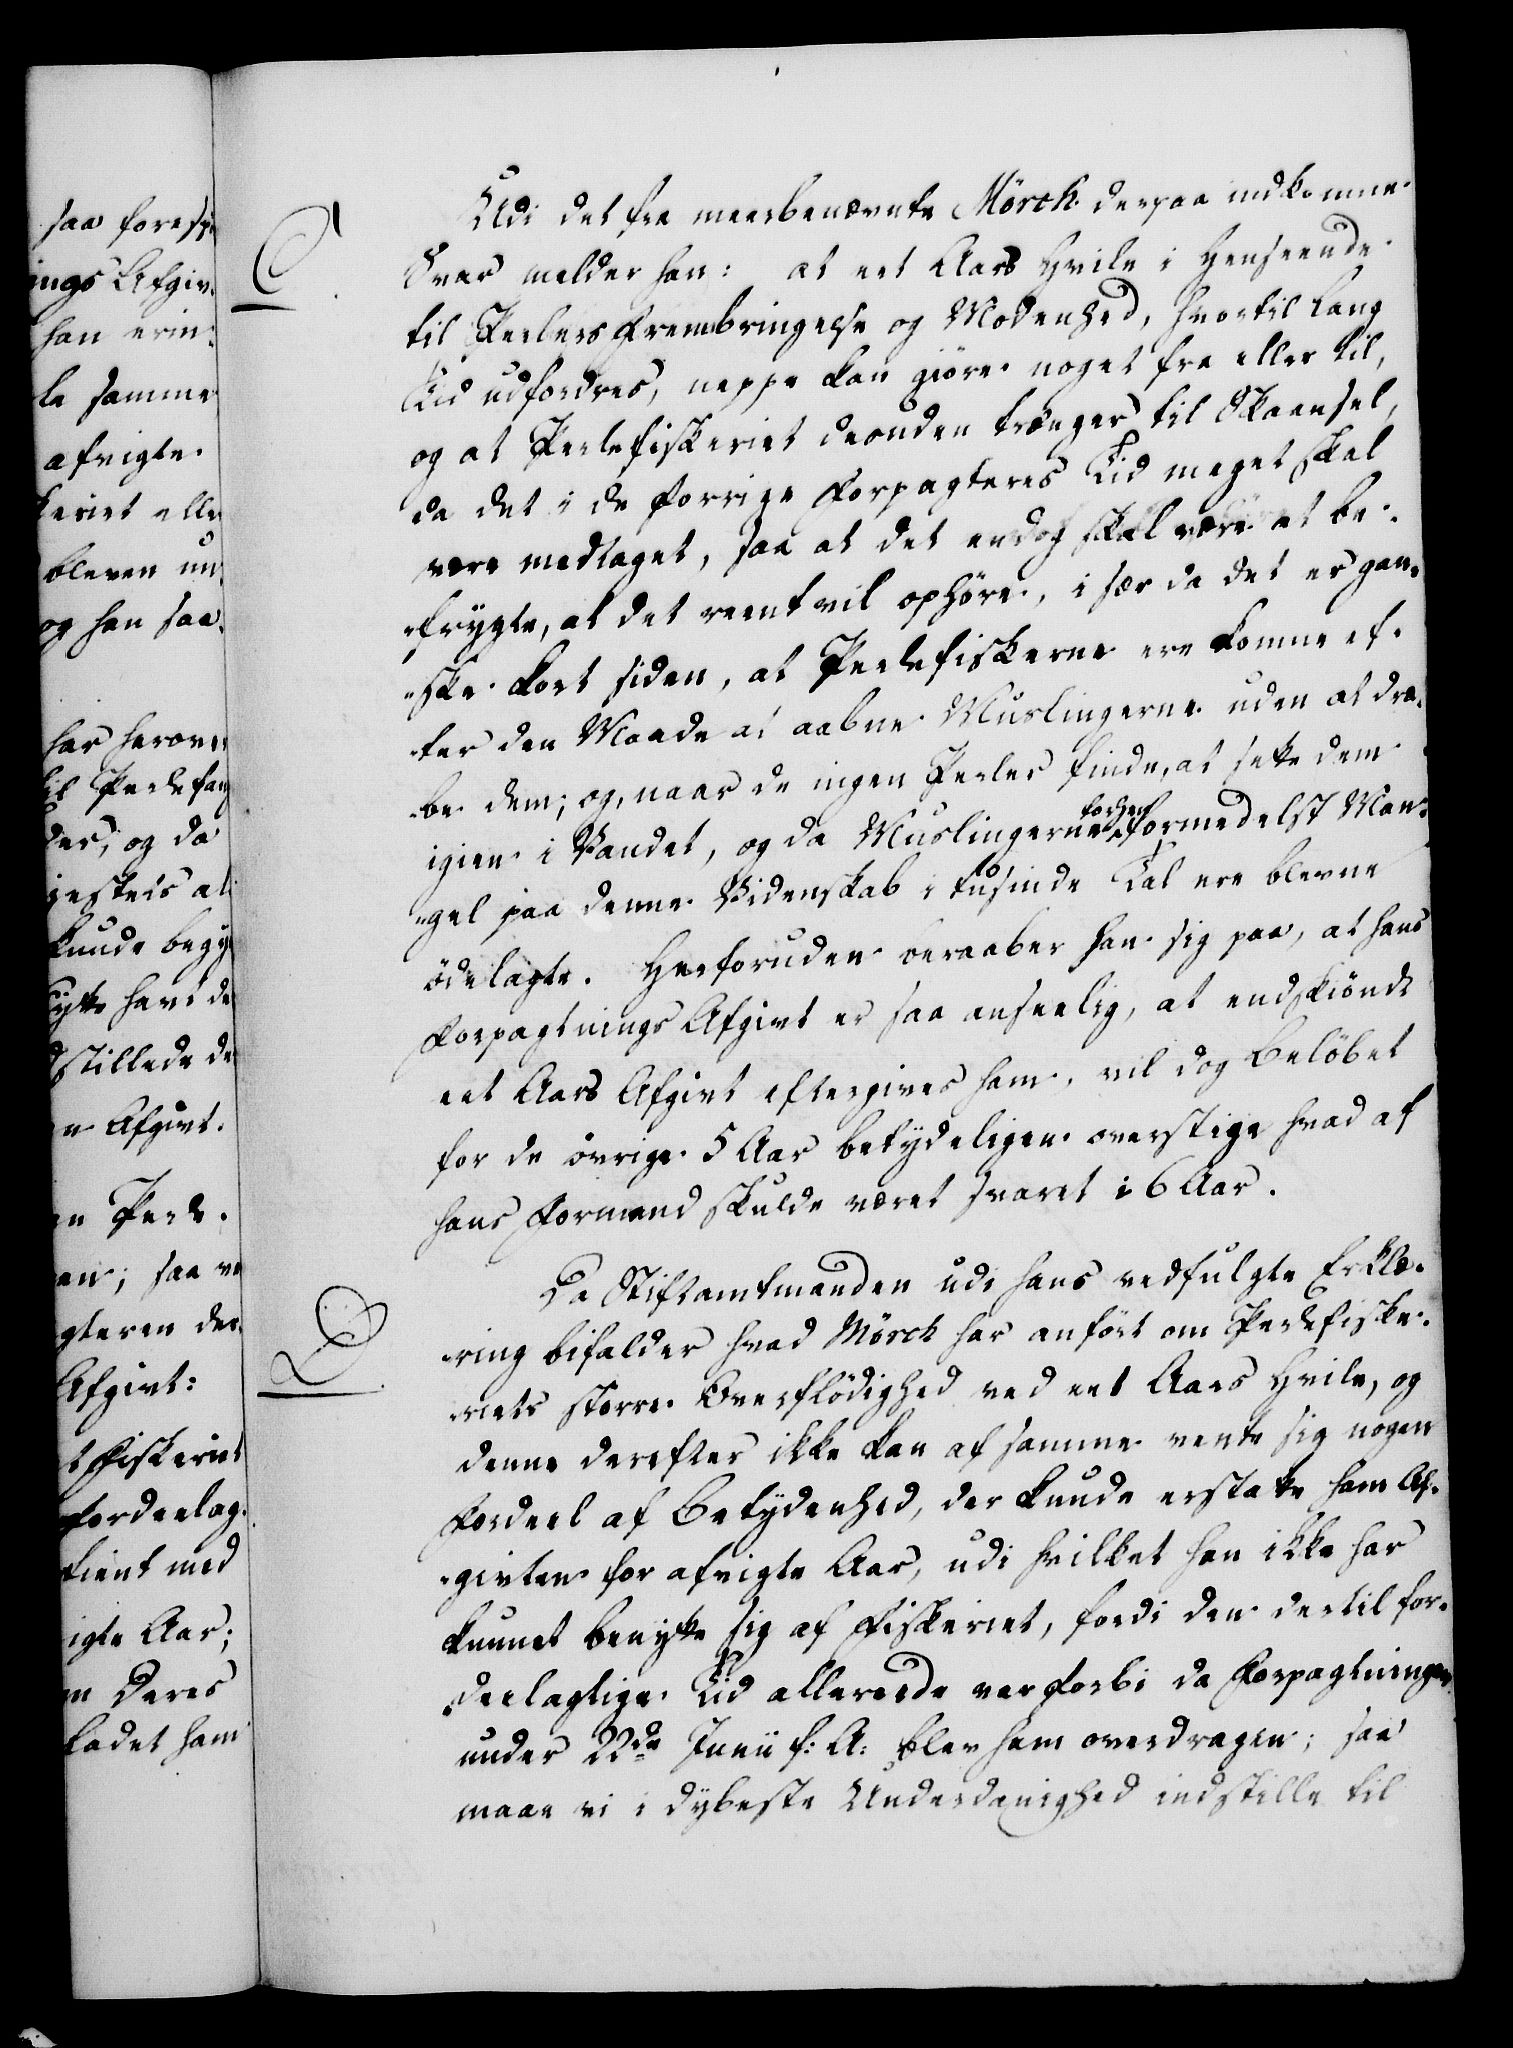 saa foresp
ings Afgiv
han erin:
le samme
afvigte
keriet elle
bleven un
og han saa
har herove
til Perlefan
der, og da
igesteds at
kunde begy
ytte havt de
dstillede de
n Afgivt.
n Perle.
en; saa ve
gteren der
Afgivt:
t Fiskeriet
fordeelag.
tient med
igte Aar;
n Deres
ladet ham
C
Udi det fra meerbenævnte Mörch derpaa indkomne
Svar melder han: at eet Aars Hvile i Henseende
til Perlers Frembringelse og Modenhed, hvortil lang
Tid udfordres, neppe kan giöre noget fra eller til,
og at Perlefiskeriet desuden trænger til Skaansel,
da det i de forrige Forpagteres Tid meget skal
være medtaget, saa at det endog skal være at be-
-frygte, at det reent vil ophöre, i sær da det er gan-
-ske kort siden, at Perlefiskerne ere komne ef-
-ter den Maade at aabne Muslingerne uden at dræ-
-be dem; og, naar de ingen Perler finde, at sette dem
igien i Vandet, og da Muslingerne forhen formedelst Man-
-gel paa denne Videnskab i tusinde Tal ere blevne
ödelagte. Herforuden beraaber han sig paa, at hans
Forpagtnings Afgivt er saa anseelig, at endskiöndt
eet Aars Afgivt eftergives ham, vil dog Belöbet
for de övrige 5 Aar betydeligen overstige hvad af
hans Formand skulde været svaret i 6 Aar.
D
Da Stiftamtmanden udi hans vedfulgte Erklæ-
-ring bifalder hvad Mörch har anfört om Perlefiske-
-riets större Overflödighed ved eet Aars Hvile, og
denne derefter ikke kan af samme vente sig nogen
Fordeel af Betydenhed, der kunde erstatte ham Af-
-givten for afvigte Aar, udi hvilket han ikke har
kunnet benytte sig af Fiskeriet, fordi den dertil for-
-deelagtige Tid allereede var forbi da Forpagtningen
under 22de Junii f: A: blev ham overdragen; saa
maae vi i dybeste Underdanighed indstille til